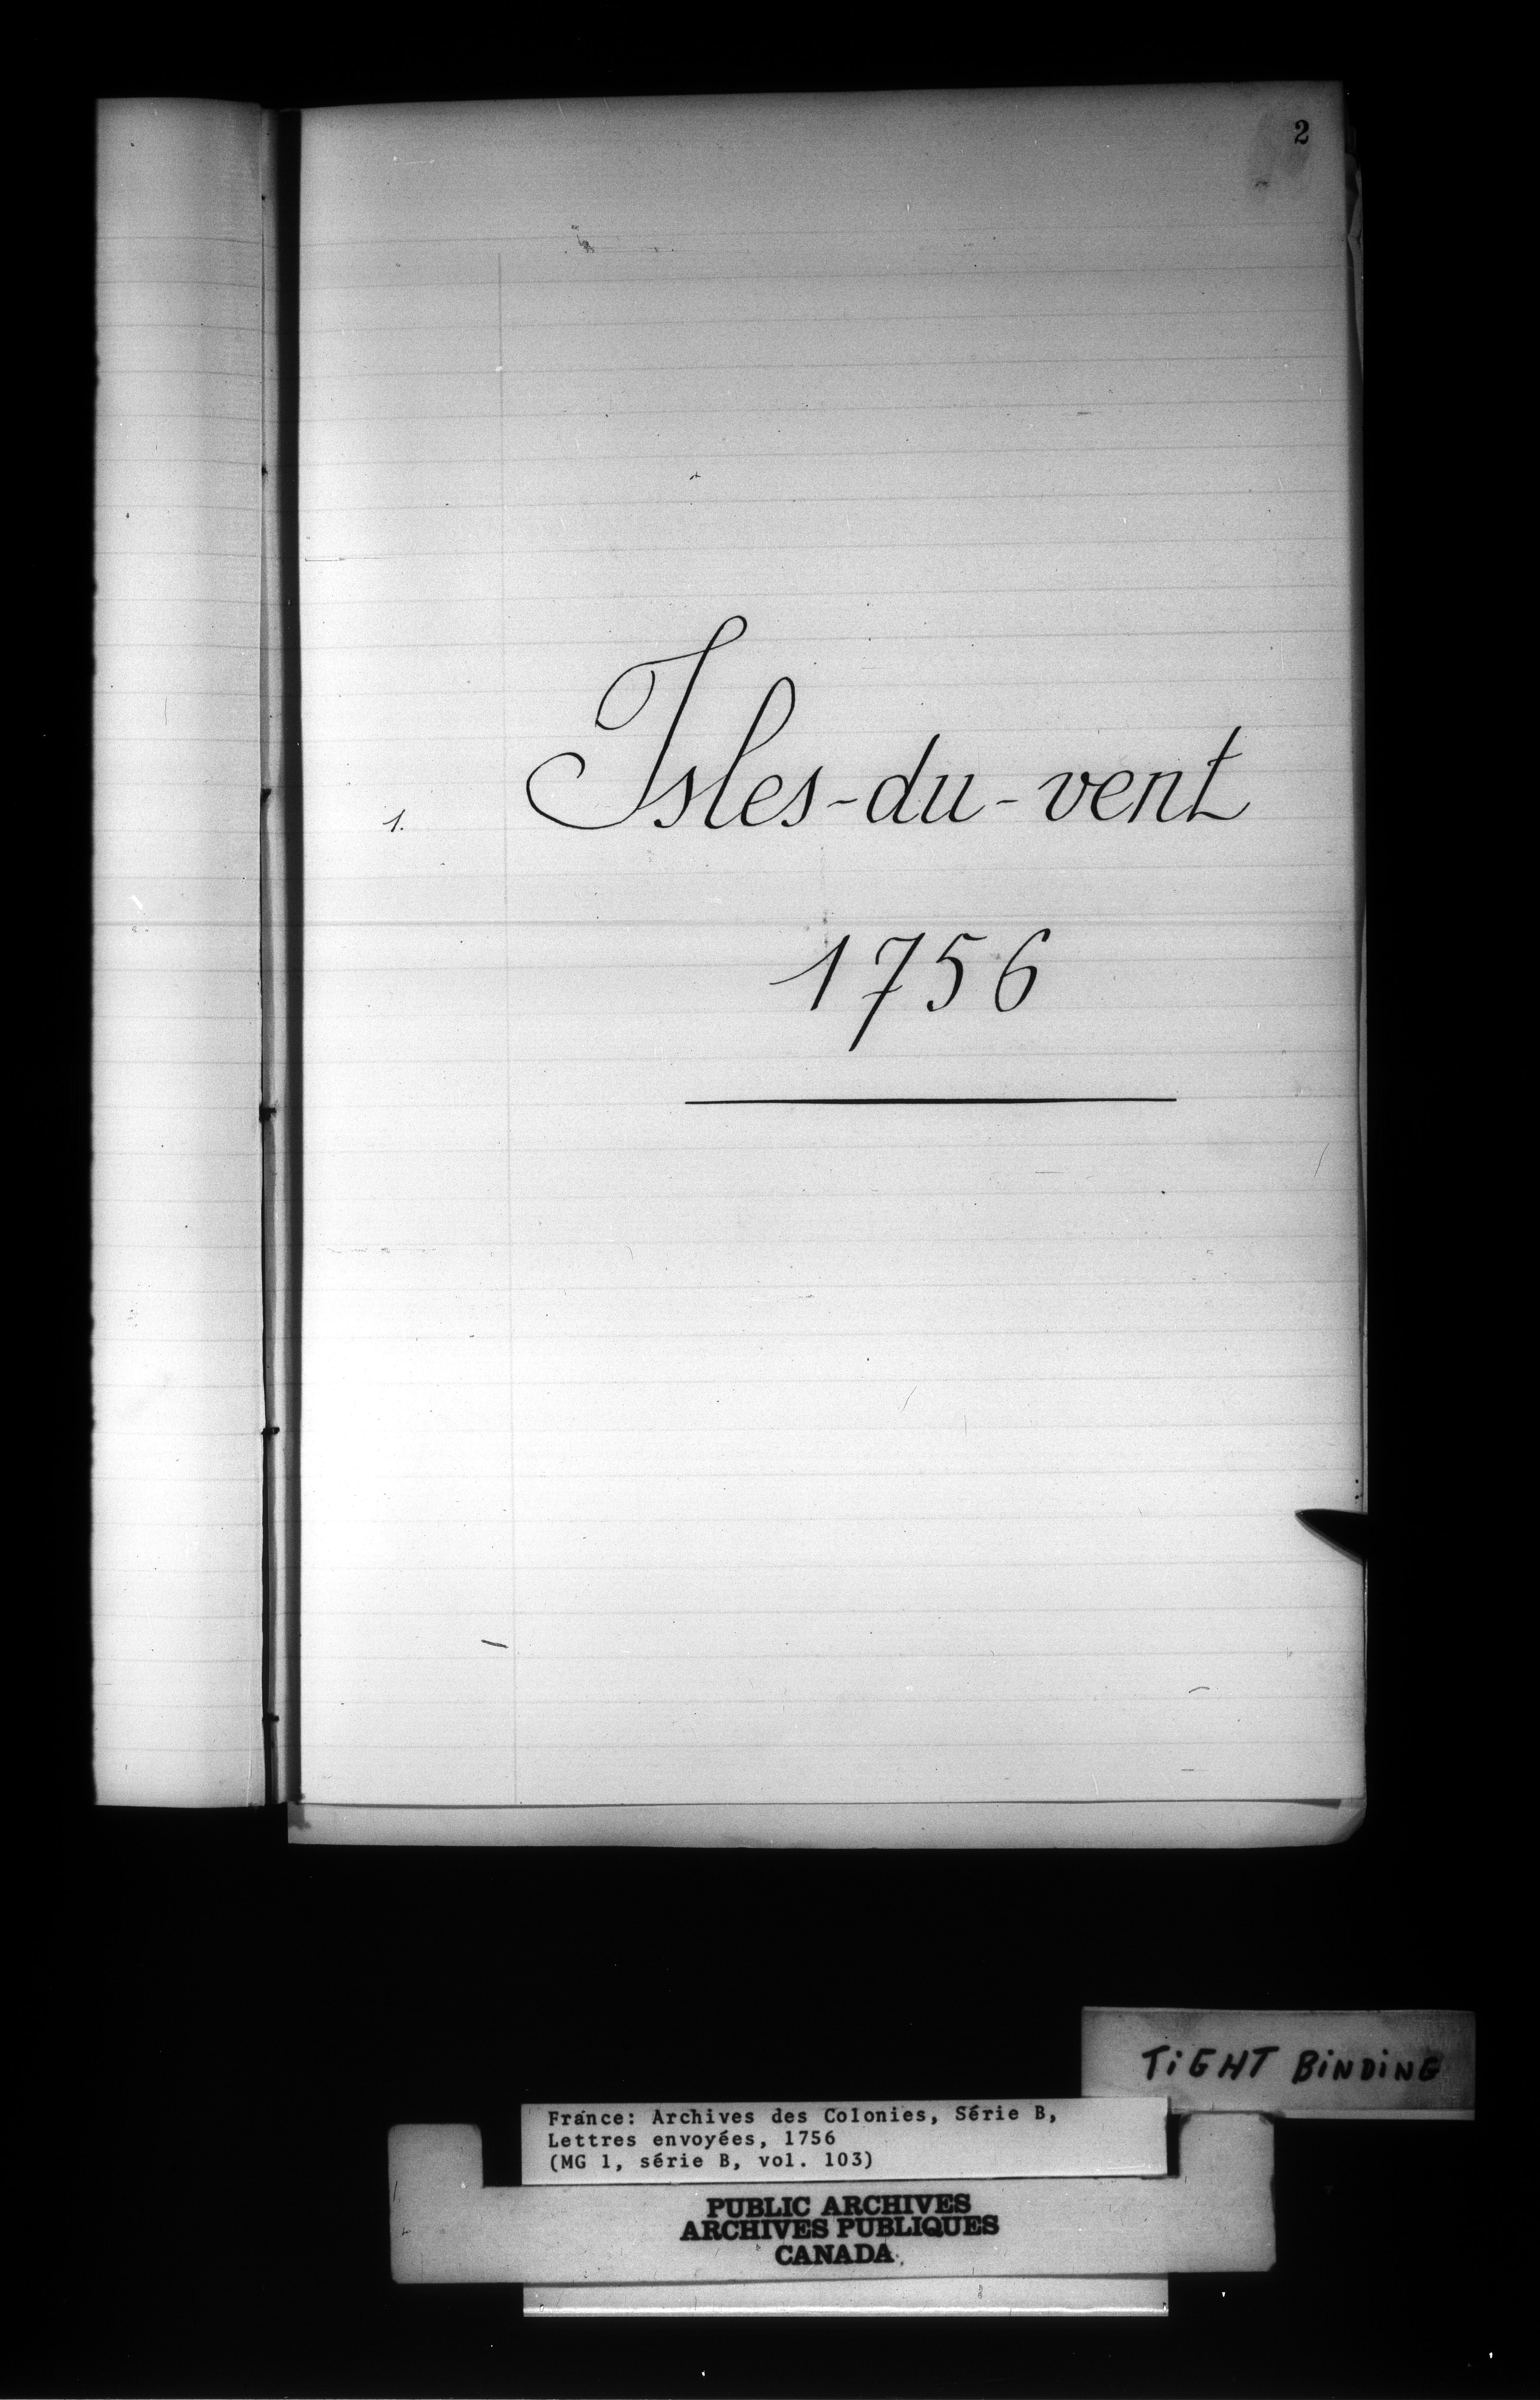 2
1. Isles-du-vent
1756
TiGHT BiNDiNG
France: Archives des Colonies, Série B,
Lettres envoyées, 1756
(MG 1, série B, vol. 103)
PUBLIC ARCHIVES
ARCHIVES PUBLIQUES
CANADA